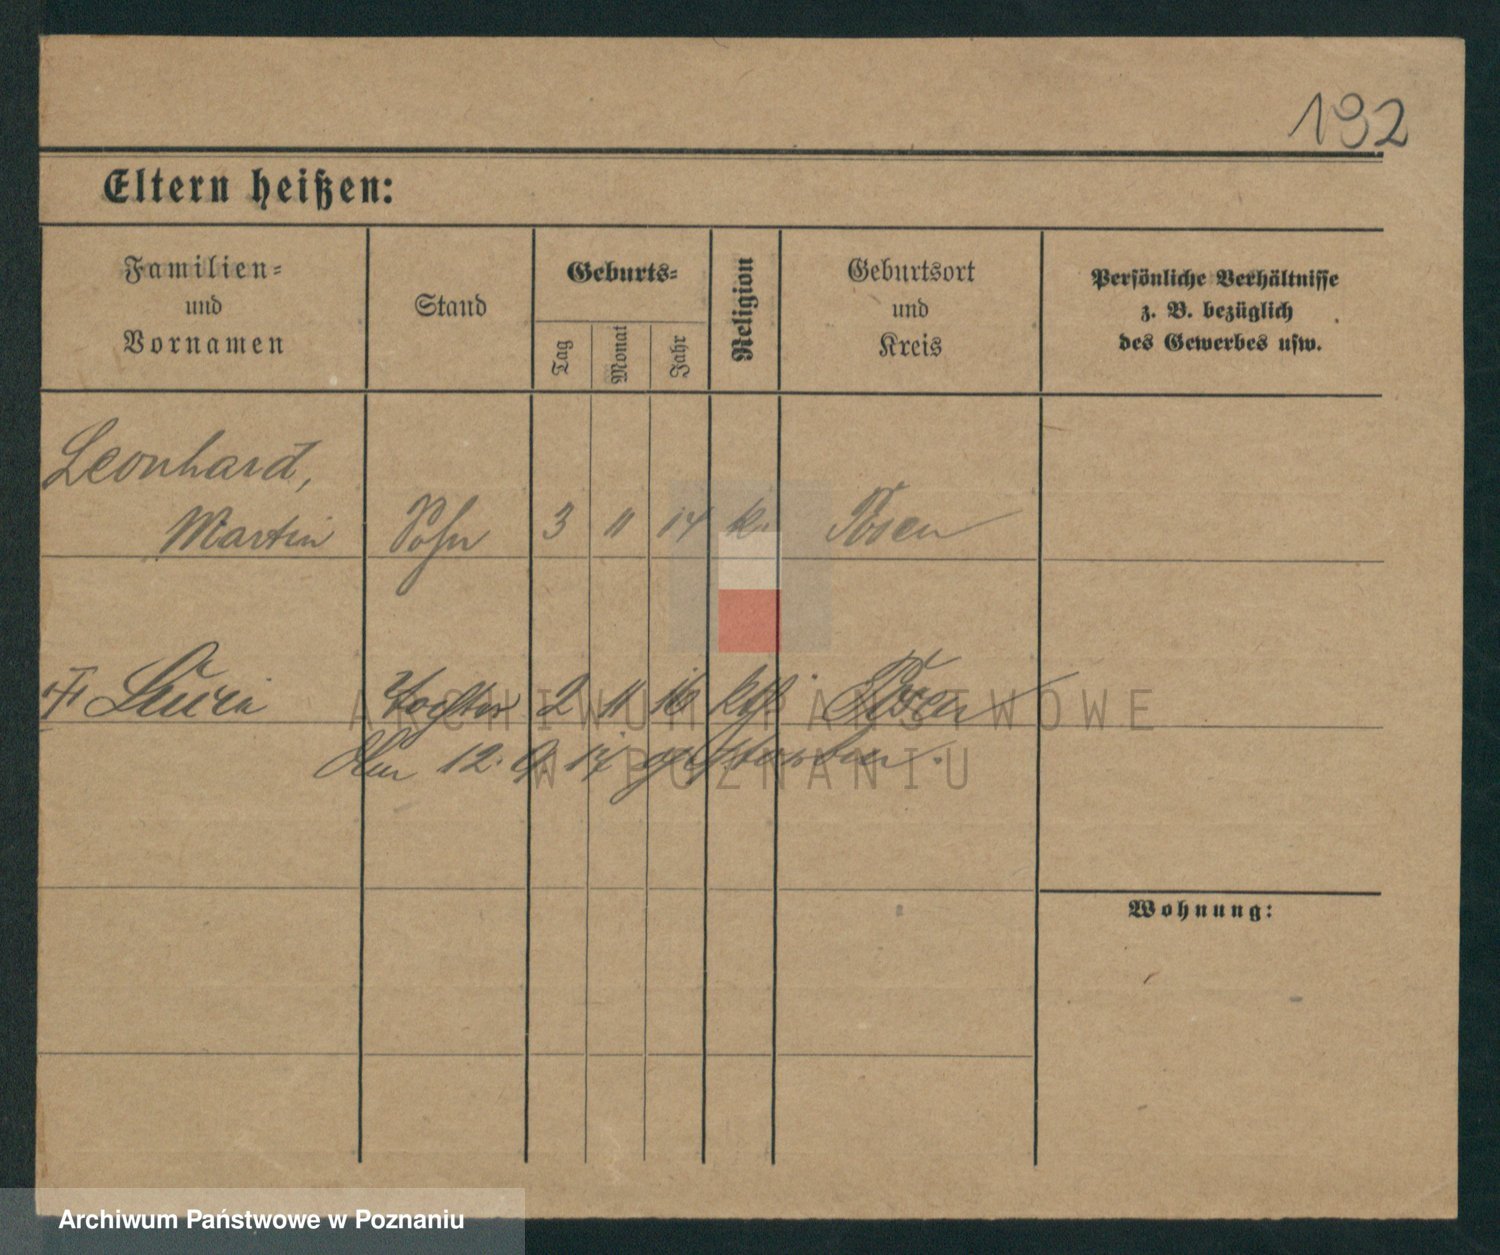 192
Eltern heißen:
Familien-
und
Vornamen
Stand
Geburts-
Tag
Monat
Jahr
Religion
Geburtsort
und
Kreis
Persönliche Verhältnisse
z. B. bezüglich
des Gewerbes usw.
Leonhard,
Martin Sohn 3 11 14 k. Posen
Tochter 2 11 16 kth. Posen
Am 12. 9. 17 gestorben.
Wohnung:
ARCHIWUM PAŃSTWOWE
W POZNANIU
Archiwum Państwowe w Poznaniu